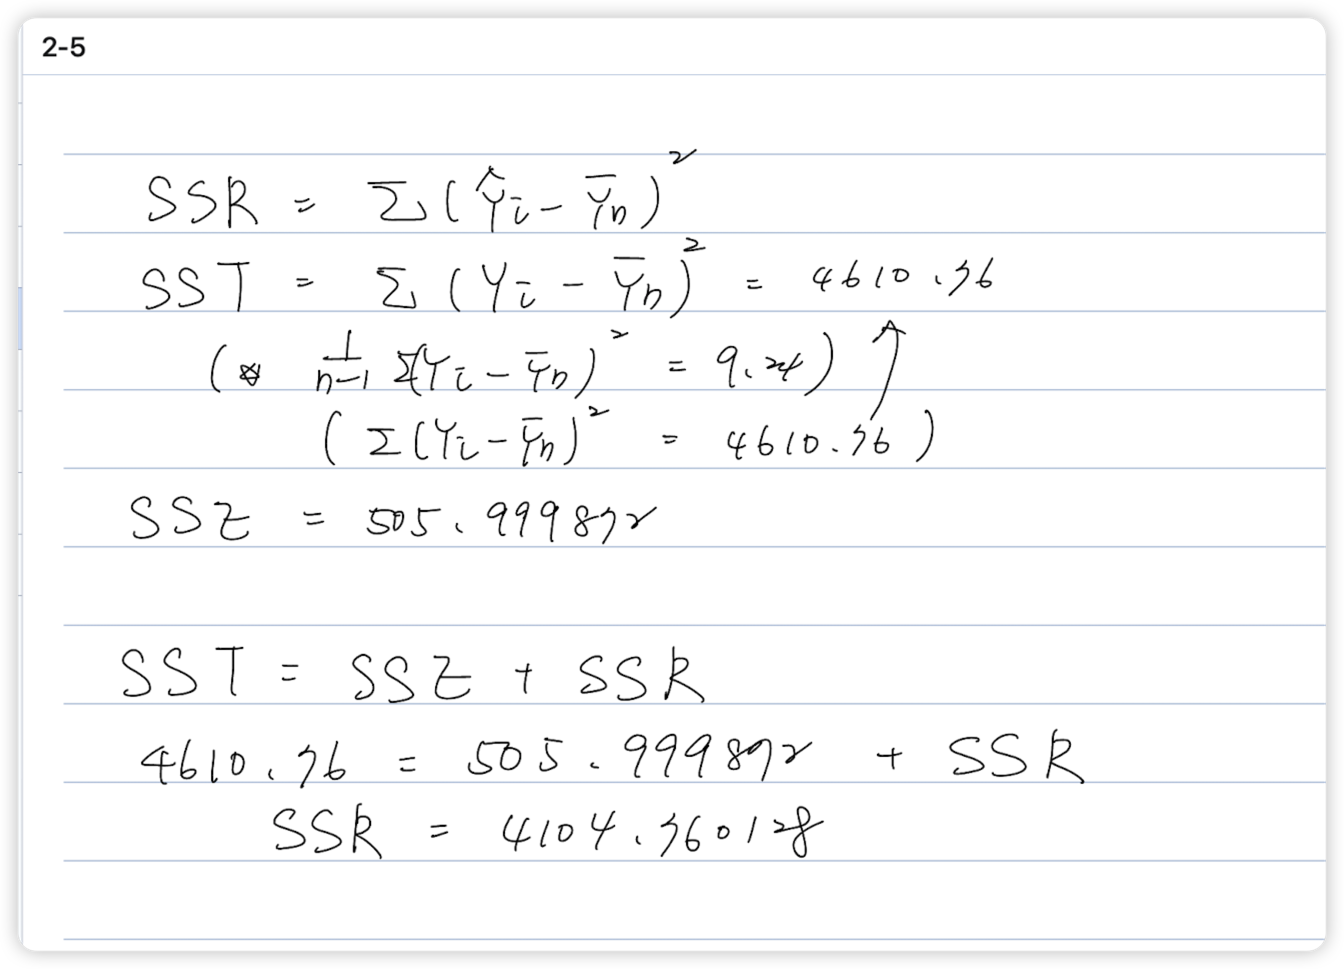 2-5
SSR = Σ(Ŷi - Ȳn)²
SST = Σ(Yi - Ȳn)² = 4610.76
(* 1/(n-1) Σ(Yi - Ȳn)² = 9.24)
(Σ(Yi - Ȳn)² = 4610.76)
SSE = 505.999872
SST = SSE + SSR
4610.76 = 505.999872 + SSR
SSR = 4104.760128